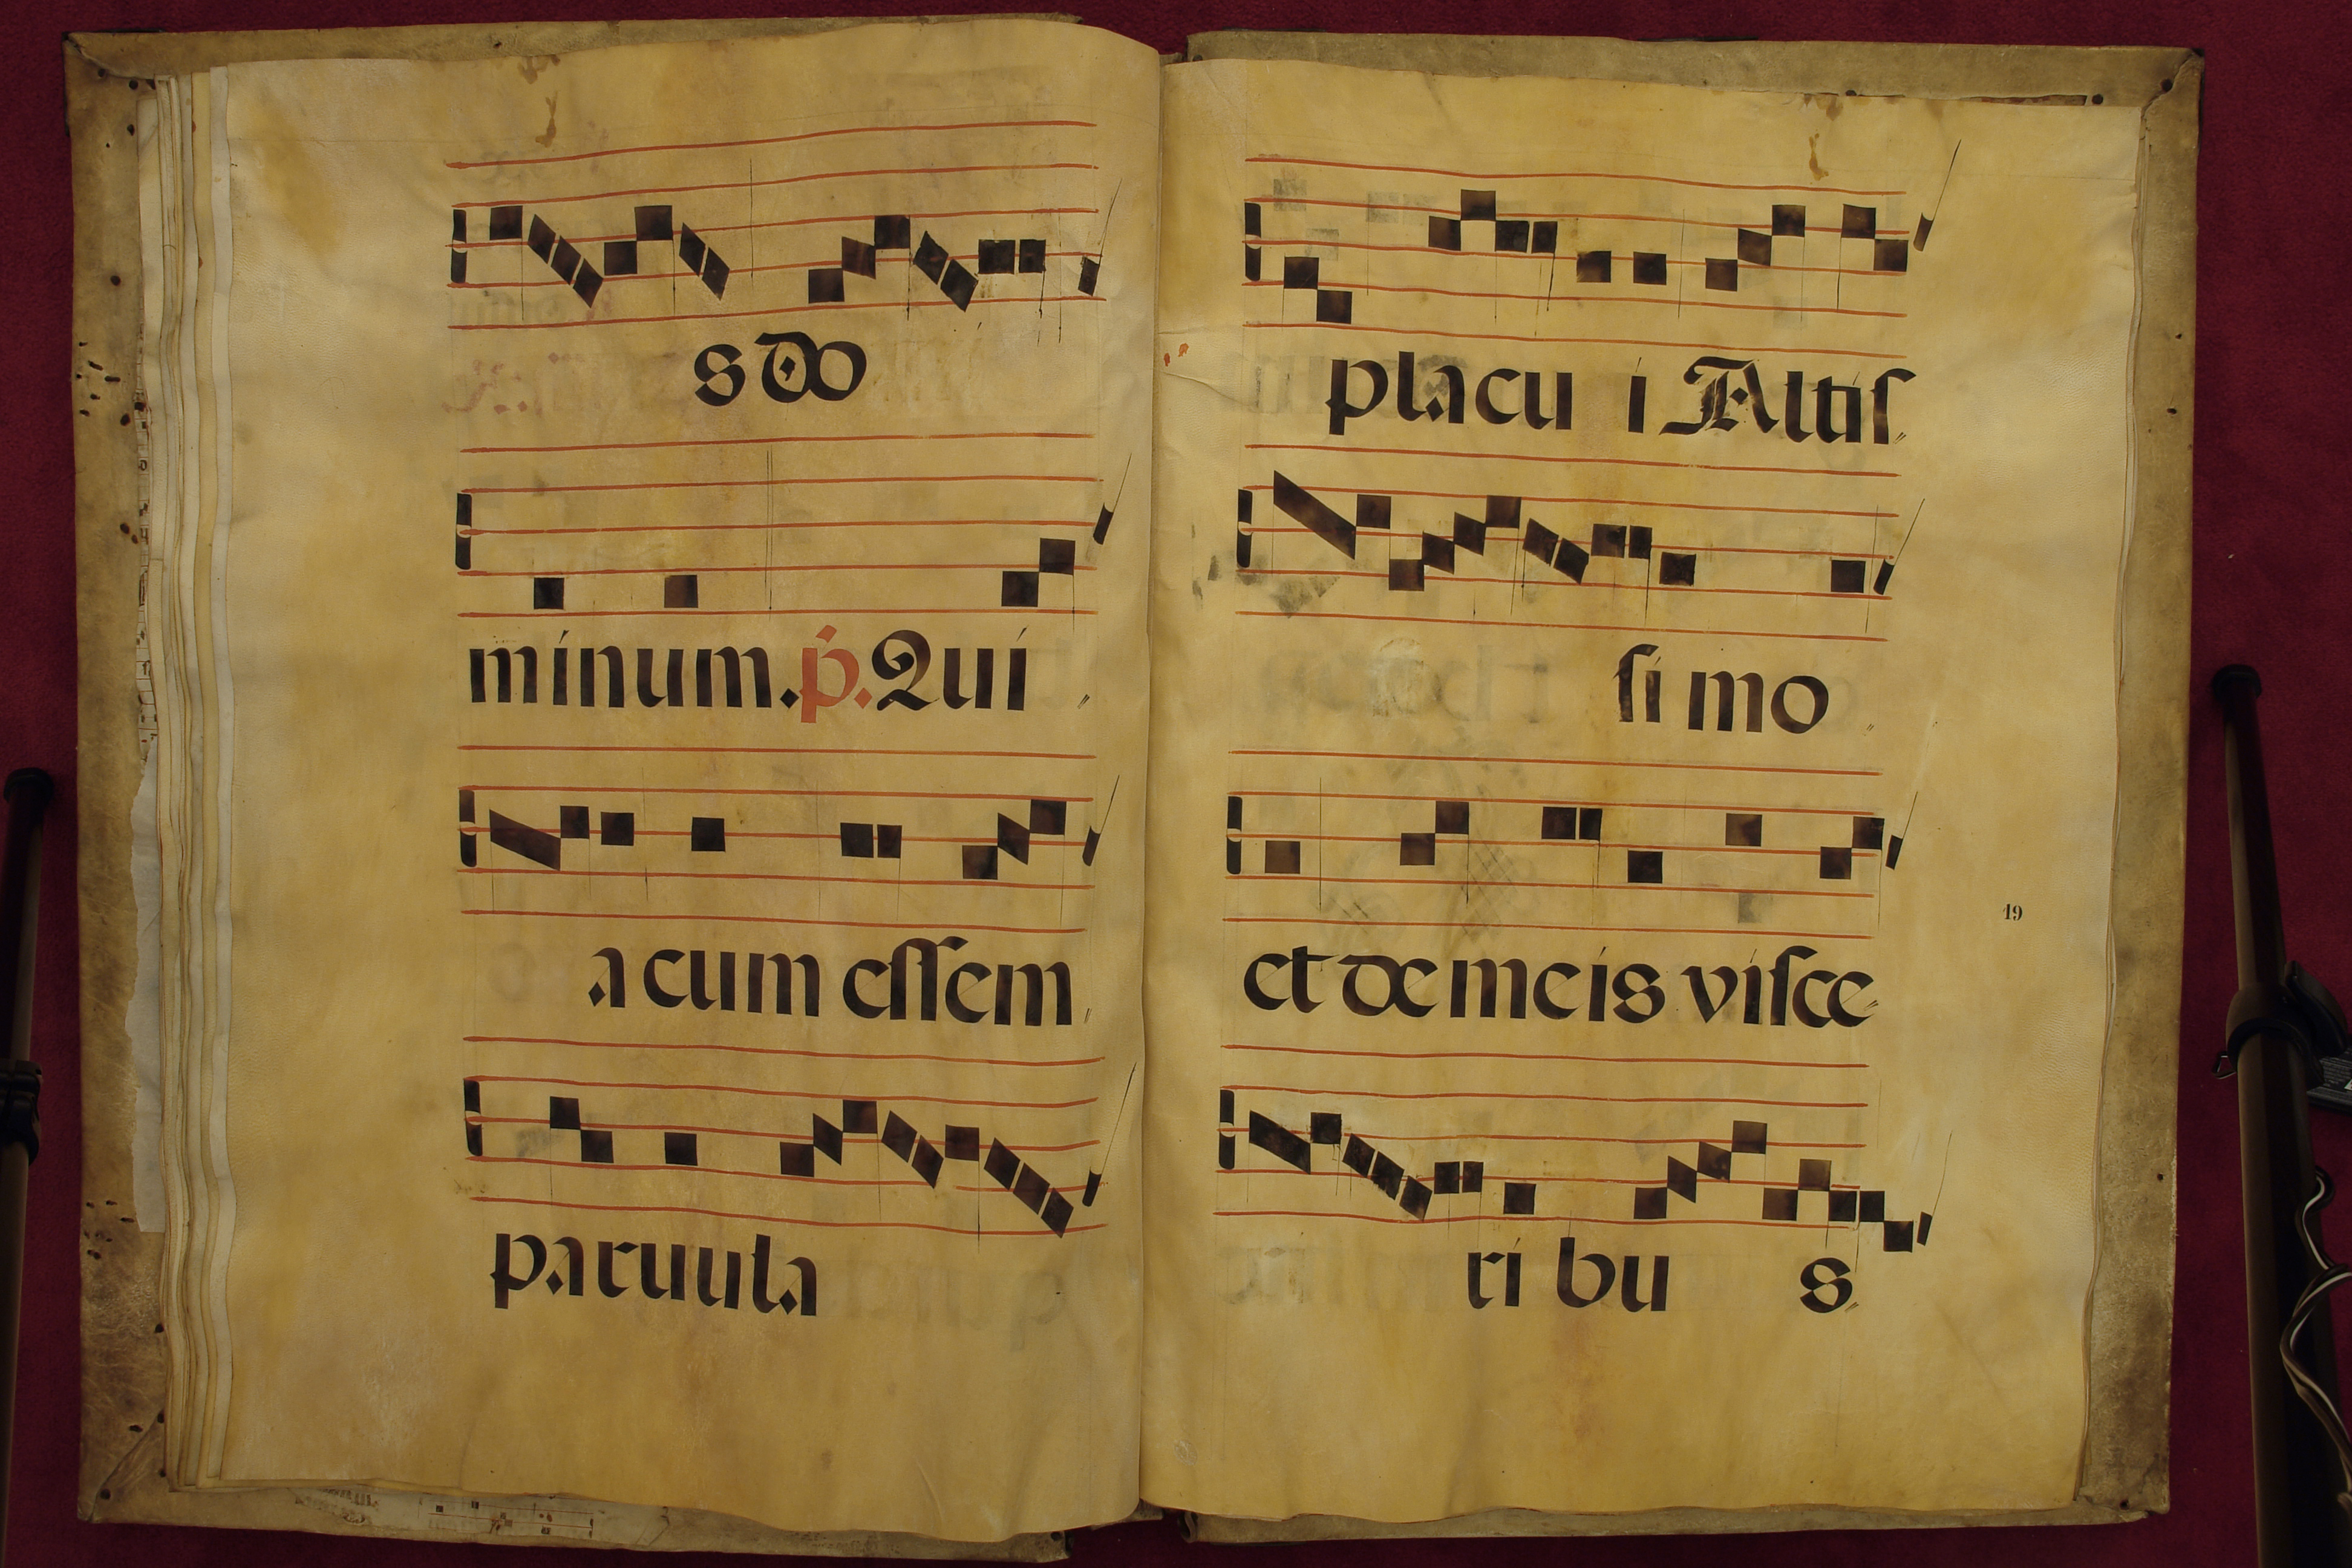 s do
minum. p̃. Qui
a cum essem
paruula
placu i Altis
si mo
et de meis visce
19
ri bu s